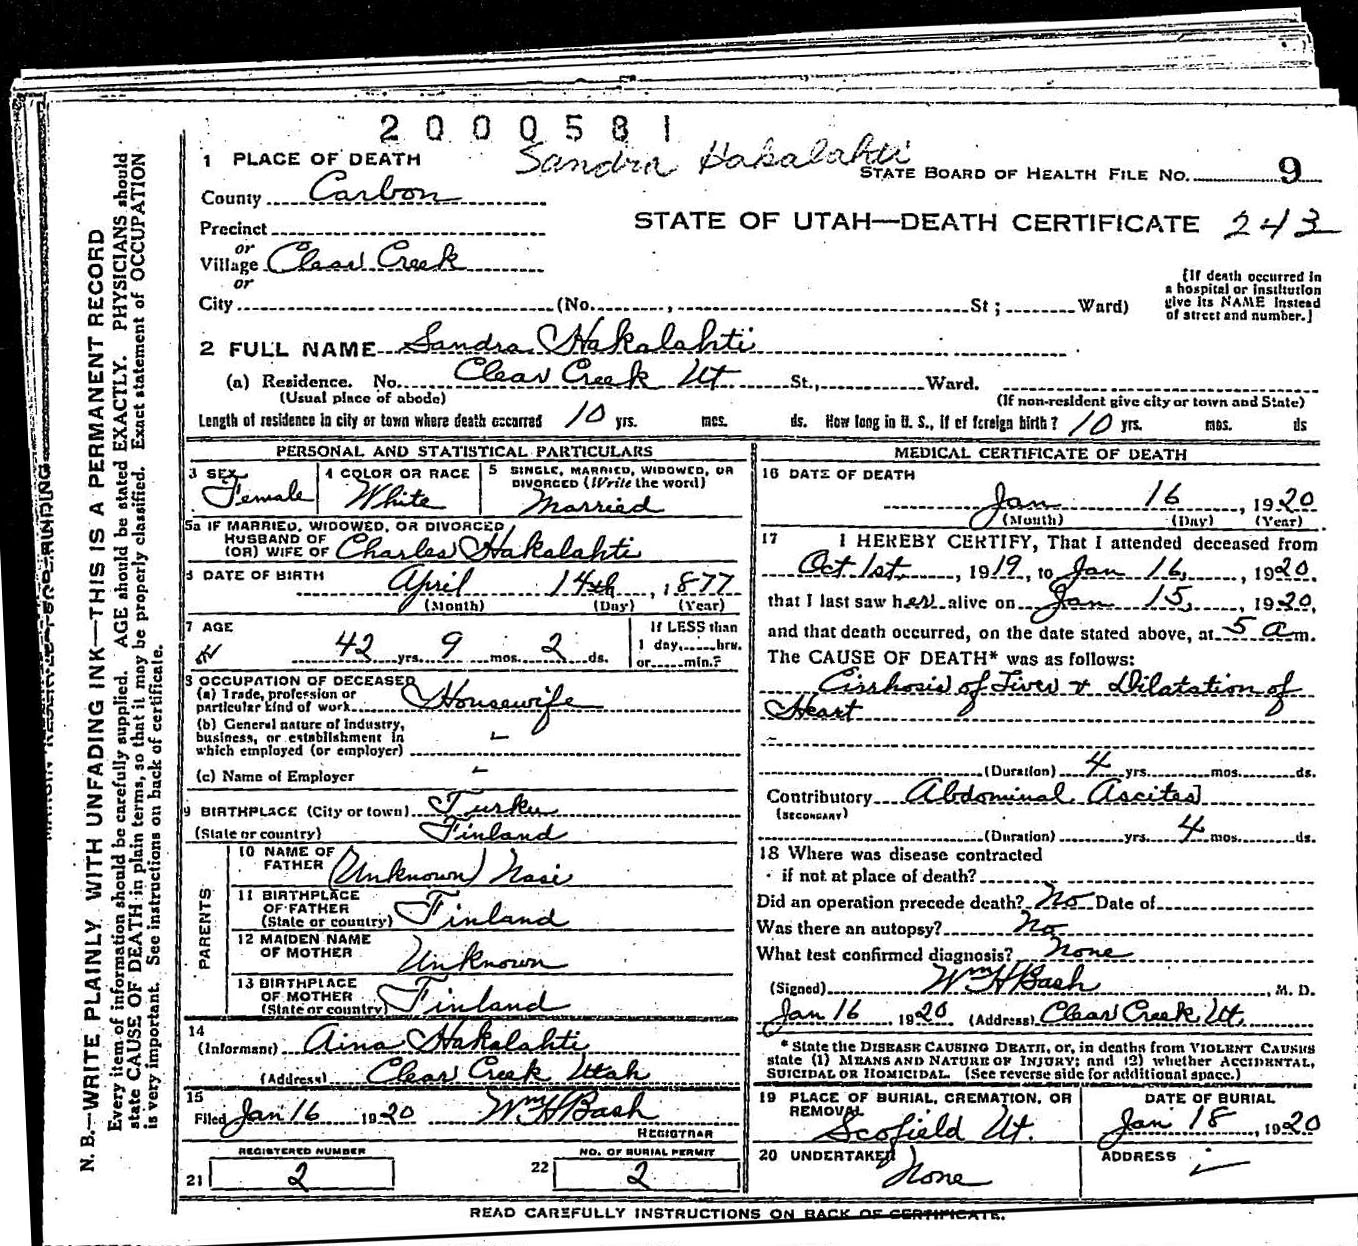 2000581
Sandra Hakalahti
1 PLACE OF DEATH
STATE BOARD OF HEALTH FILE NO. 9
County Carbon
STATE OF UTAH—DEATH CERTIFICATE 243
Precinct
or
Village Clear Creek
or
City (No. , St; Ward)
[If death occurred in
a hospital or institution
give its NAME instead
of street and number.]
2 FULL NAME Sandra Hakalahti
(a) Residence. No. Clear Creek Ut St., Ward.
(Usual place of abode)
(If non-resident give city or town and State)
Length of residence in city or town where death occurred 10 yrs. mos. ds. How long in U. S., if of foreign birth? 10 yrs. mos. ds
PERSONAL AND STATISTICAL PARTICULARS
3 SEX
Female
4 COLOR OR RACE
White
5 SINGLE, MARRIED, WIDOWED, OR
DIVORCED (Write the word)
Married
5a IF MARRIED, WIDOWED, OR DIVORCED
HUSBAND OF
(OR) WIFE OF Charles Hakalahti
DATE OF BIRTH
April 14th, 1877
(Month) (Day) (Year)
7 AGE
42 yrs. 9 mos. 2 ds.
If LESS than
1 day, hrs.
or min.?
8 OCCUPATION OF DECEASED
(a) Trade, profession or
particular kind of work Housewife
(b) General nature of Industry,
business, or establishment in
which employed (or employer)
(c) Name of Employer
9 BIRTHPLACE (City or town) Turku
(State or country) Finland
PARENTS
10 NAME OF
FATHER (Unknown) Nasi
11 BIRTHPLACE
OF FATHER
(State or country) Finland
12 MAIDEN NAME
OF MOTHER Unknown
13 BIRTHPLACE
OF MOTHER
(State or country) Finland
14
(Informant) Aina Hakalahti
(Address) Clear Creek Utah
15
Filed Jan 16 1920 Wm H Bash
REGISTRAR
REGISTERED NUMBER
21 2
NO. OF BURIAL PERMIT
22 2
MEDICAL CERTIFICATE OF DEATH
16 DATE OF DEATH
Jan 16, 1920
(Month) (Day) (Year)
17 I HEREBY CERTIFY, That I attended deceased from
Oct 1st, 1919, to Jan 16, 1920,
that I last saw her alive on Jan 15, 1920,
and that death occurred, on the date stated above, at 5 a m.
The CAUSE OF DEATH* was as follows:
Cirrhosis of Liver & Dilatation of
Heart
(Duration) 4 yrs. mos. ds.
Contributory Abdominal Ascites
(SECONDARY)
(Duration) yrs. 4 mos. ds.
18 Where was disease contracted
if not at place of death?
Did an operation precede death? No Date of
Was there an autopsy? No
What test confirmed diagnosis? None
(Signed) Wm H Bash, M. D.
Jan 16 1920 (Address) Clear Creek, Ut.
* State the DISEASE CAUSING DEATH, or, in deaths from VIOLENT CAUSES
state (1) MEANS AND NATURE OF INJURY; and (2) whether ACCIDENTAL,
SUICIDAL OR HOMICIDAL. (See reverse side for additional space.)
19 PLACE OF BURIAL, CREMATION, OR
REMOVAL
Scofield Ut.
DATE OF BURIAL
Jan 18, 1920
20 UNDERTAKER
None
ADDRESS
READ CAREFULLY INSTRUCTIONS ON BACK OF CERTIFICATE.
N. B.—WRITE PLAINLY WITH UNFADING INK—THIS IS A PERMANENT RECORD
Every item of information should be carefully supplied. AGE should be stated EXACTLY. PHYSICIANS should
state CAUSE OF DEATH in plain terms, so that it may be properly classified. Exact statement of OCCUPATION
is very important. See instructions on back of certificate.
MARGIN RESERVED FOR BINDING